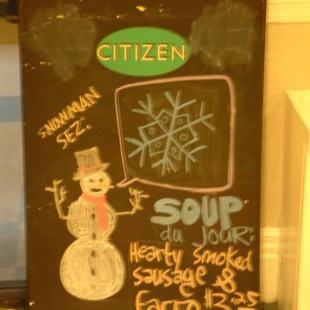 CITIZEN
SNOWMAN
SEZ:
SOUP
du JOUR:
Hearty Smoked
Sausage &
Farro $3.25